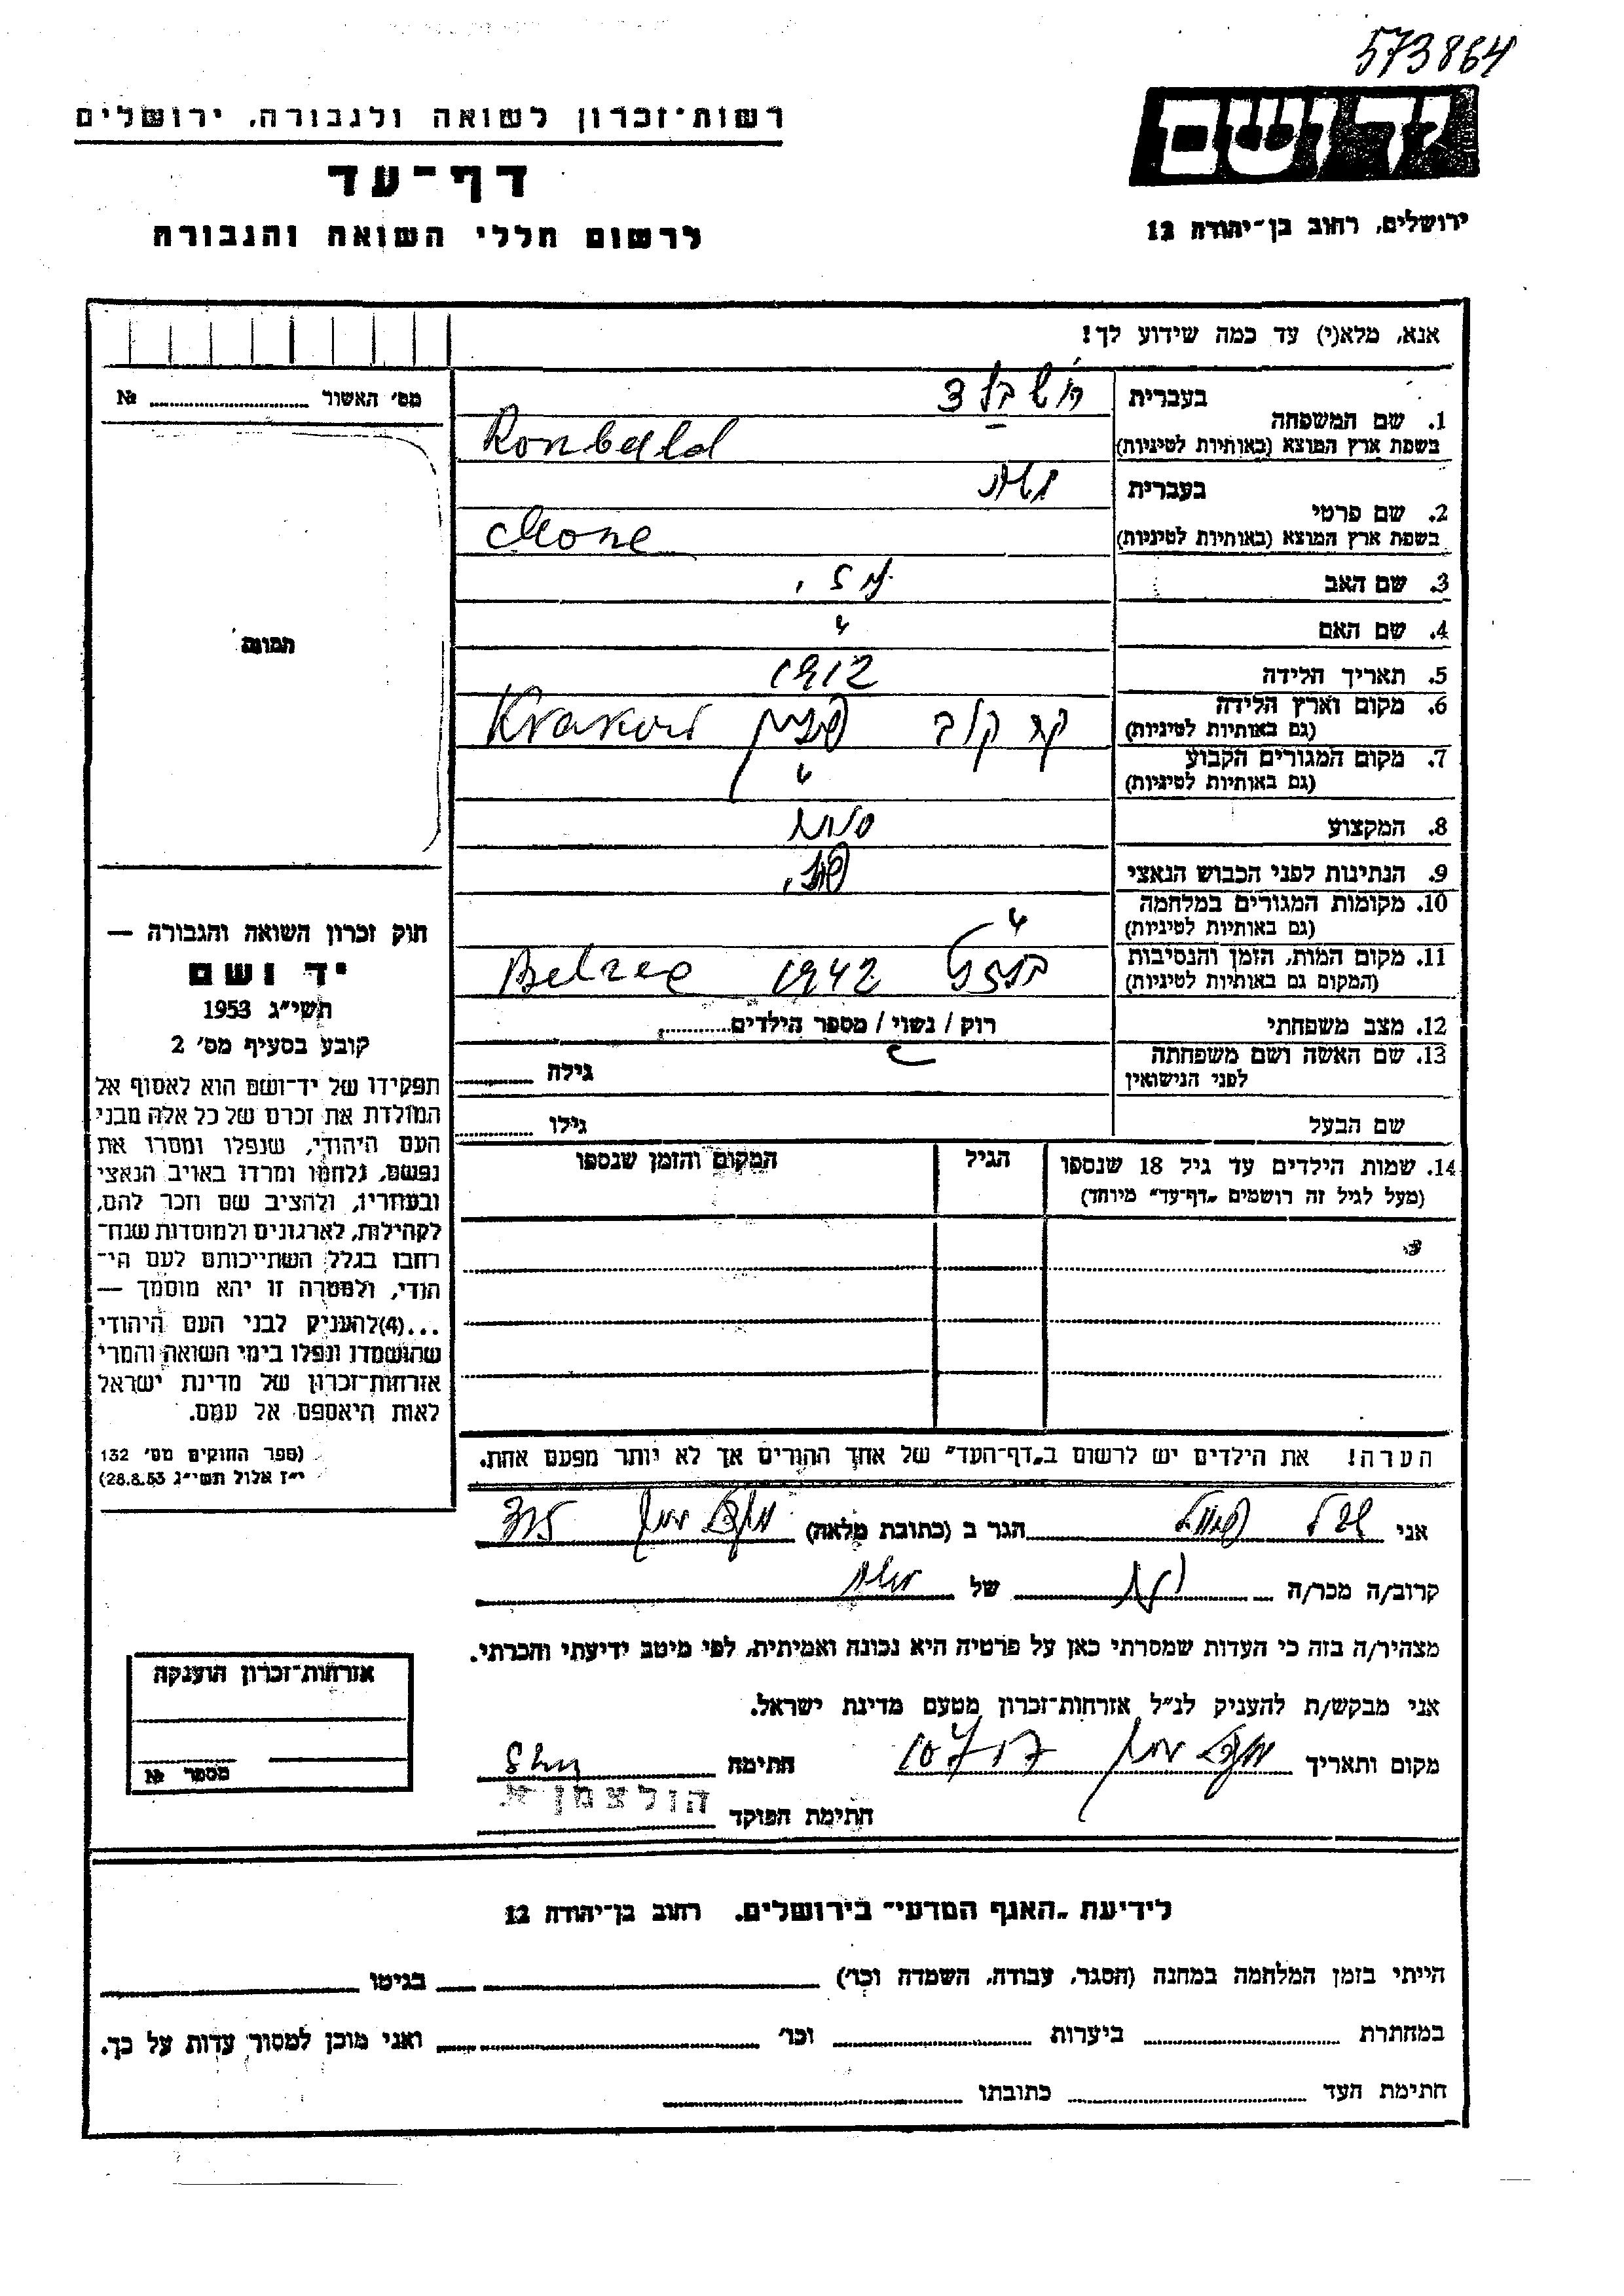 573864
רשות־זכרון לשואה ולגבורה, ירושלים
יד ושם
דף־עד
ירושלים, רחוב בן־יהודה 12
לרשום חללי השואה והגבורה
אנא, מלא(י) עד כמה שידוע לך!
מס׳ האשור №
1. שם המשפחה
בעברית
בשפת ארץ המוצא (באותיות לטיניות) Ronbald
2. שם פרטי
בעברית
בשפת ארץ המוצא (באותיות לטיניות) Mone
3. שם האב
4. שם האם "
5. תאריך הלידה 1912
6. מקום וארץ הלידה
(גם באותיות לטיניות) פולין Krakow
7. מקום המגורים הקבוע
(גם באותיות לטיניות) "
8. המקצוע סוחר
9. הנתינות לפני הכבוש הנאצי פול.
10. מקומות המגורים במלחמה
(גם באותיות לטיניות) "
11. מקום המות, הזמן והנסיבות
(המקום גם באותיות לטיניות) 1942 Belzec
12. מצב משפחתי רוק / נשוי / מספר הילדים
13. שם האשה ושם משפחתה
לפני הנישואין גילה
שם הבעל גילו
14. שמות הילדים עד גיל 18 שנספו
(מעל לגיל זה רושמים „דף־עד״ מיוחד)
הגיל
המקום והזמן שנספו
הערה! את הילדים יש לרשום ב„דף־העד״ של אחד ההורים אך לא יותר מפעם אחת.
תמונה
חוק זכרון השואה והגבורה —
יד ושם
תשי״ג 1953
קובע בסעיף מס׳ 2
תפקידו של יד־ושם הוא לאסוף אל
המולדת את זכרם של כל אלה מבני
העם היהודי, שנפלו ומסרו את
נפשם, נלחמו ומרדו באויב הנאצי
ובעוזריו, ולהציב שם וזכר להם,
לקהילות, לארגונים ולמוסדות שנח־
רבו בגלל השתייכותם לעם הי־
הודי, ולמטרה זו יהא מוסמך —
...(4) להעניק לבני העם היהודי
שהושמדו ונפלו בימי השואה והמרי
אזרחות־זכרון של מדינת ישראל
לאות היאספם אל עמם.
(ספר החוקים מס׳ 132
י״ז אלול תשי״ג 28.8.53)
אני הגר ב (כתובת מלאה)
קרוב/ה מכר/ה של
מצהיר/ה בזה כי העדות שמסרתי כאן על פרטיה היא נכונה ואמיתית, לפי מיטב ידיעתי והכרתי.
אני מבקש/ת להעניק לנ״ל אזרחות־זכרון מטעם מדינת ישראל.
מקום ותאריך חתימה
הולצמן א
חתימת הפוקד
אזרחות־זכרון הוענקה
מספר №
לידיעת „האגף המדעי״ בירושלים, רחוב בן־יהודה 12
הייתי בזמן המלחמה במחנה (הסגר, עבודה, השמדה וכו׳) בגיטו
במחתרת ביערות וכו׳ ואני מוכן למסור עדות על כך.
חתימת העד כתובתו